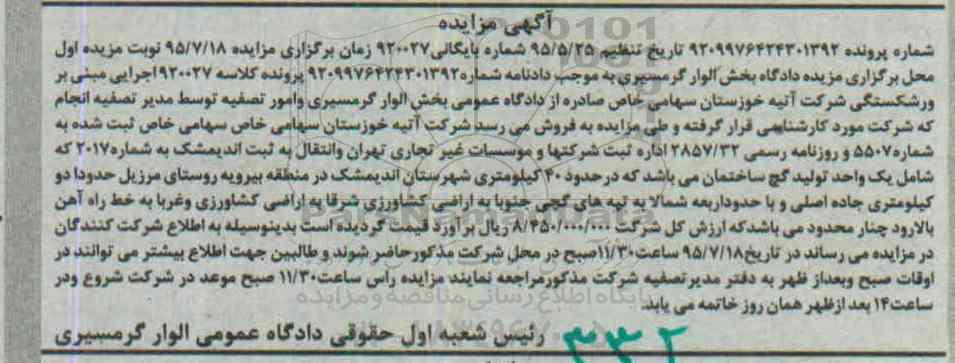 آگهی مزایده
شماره پرونده ۹۲۰۹۹۷۶۴۲۴۳۰۱۳۹۲ تاریخ تنظیم ۹۵/۵/۲۵ شماره بایگانی ۹۲۰۰۲۷ زمان برگزاری مزایده ۹۵/۷/۱۸ نوبت مزیده اول
محل برگزاری مزیده دادگاه بخش الوار گرمسیری به موجب دادنامه شماره ۹۲۰۹۹۷۶۴۲۴۳۰۱۳۹۲ پرونده کلاسه ۹۲۰۰۲۷ اجرایی مبنی بر
ورشکستگی شرکت آتیه خوزستان سهامی خاص صادره از دادگاه عمومی بخش الوار گرمسیری وامور تصفیه توسط مدیر تصفیه انجام
که شرکت مورد کارشناسی قرار گرفته و طی مزایده به فروش می رسد شرکت آتیه خوزستان سهامی خاص سهامی خاص ثبت شده به
شماره ۵۵۰۷ و روزنامه رسمی ۲۸۵۷/۳۲ اداره ثبت شرکتها و موسسات غیر تجاری تهران وانتقال به ثبت اندیمشک به شماره ۲۰۱۷ که
شامل یک واحد تولید گچ ساختمان می باشد که درحدود ۴۰ کیلومتری شهرستان اندیمشک در منطقه بیرویه روستای مرزیل حدودا دو
کیلومتری جاده اصلی و با حدوداربعه شمالا به تپه های گچی جنوبا به اراضی کشاورزی شرقا به اراضی کشاورزی وغربا به خط راه آهن
بالارود چنار محدود می باشدکه ارزش کل شرکت ۸/۴۵۰/۰۰۰/۰۰۰ ریال برآورد قیمت گردیده است بدینوسیله به اطلاع شرکت کنندگان
در مزایده می رساند در تاریخ ۹۵/۷/۱۸ ساعت ۱۱/۳۰صبح در محل شرکت مذکورحاضر شوند و طالبین جهت اطلاع بیشتر می توانند در
اوقات صبح وبعداز ظهر به دفتر مدیرتصفیه شرکت مذکورمراجعه نمایند مزایده راس ساعت ۱۱/۳۰ صبح موعد در شرکت شروع ودر
ساعت ۱۴ بعد ازظهر همان روز خاتمه می یابد
ParsNamadData
پایگاه اطلاع رسانی مناقصه و مزایده
رئیس شعبه اول حقوقی دادگاه عمومی الوار گرمسیری